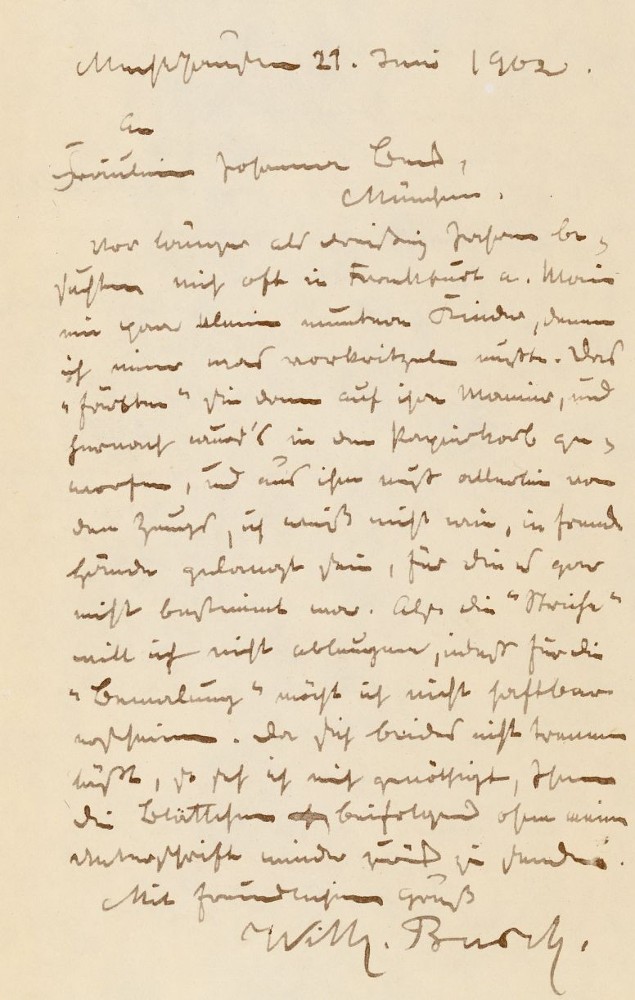 Mechtshausen 21. Juni 1902.
An
Fräulein Johanna
München.
Vor länger als dreißig Jahren be-
suchten mich oft in Frankfurt a. Main
ein paar kleine muntere Kinder, denen
ich immer was vorkritzeln mußte. Das
"färbten" sie dann auf ihre Manier, und
hernach ward's in den Papierkorb ge-
worfen, und aus ihm muß allerlei von
dem Zeugs, ich weiß nicht wie, in fremde
Hände gelangt sein, für die es gar
nicht bestimmt war. Also die "Striche"
will ich nicht ableugnen, indeß für die
"Bemalung" möcht ich nicht haftbar
erscheinen. Da sich beides nicht trennen
läßt, so seh ich mich genöthigt, Ihnen
die Blättchen beifolgend ohne meine
Unterschrift wieder zurück zu senden.
Mit freundlichem Gruß
Wilh. Busch.